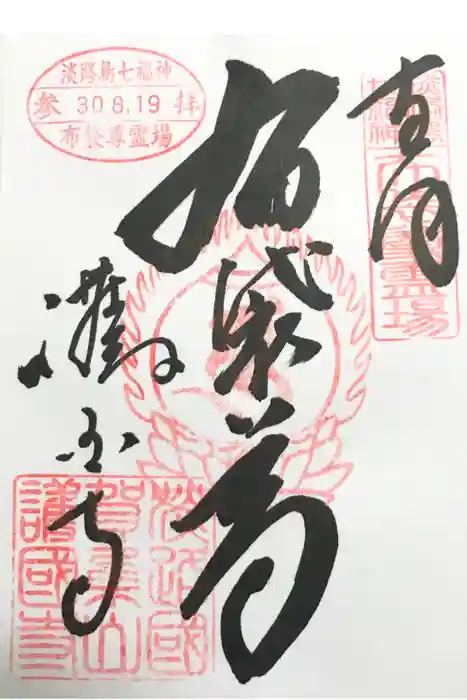 淡路島七福神
参 30.8.19 拝
布袋尊霊場
淡路島
七福神
布袋尊霊場
布袋尊
護国寺
淡路國
賀集山
護國寺